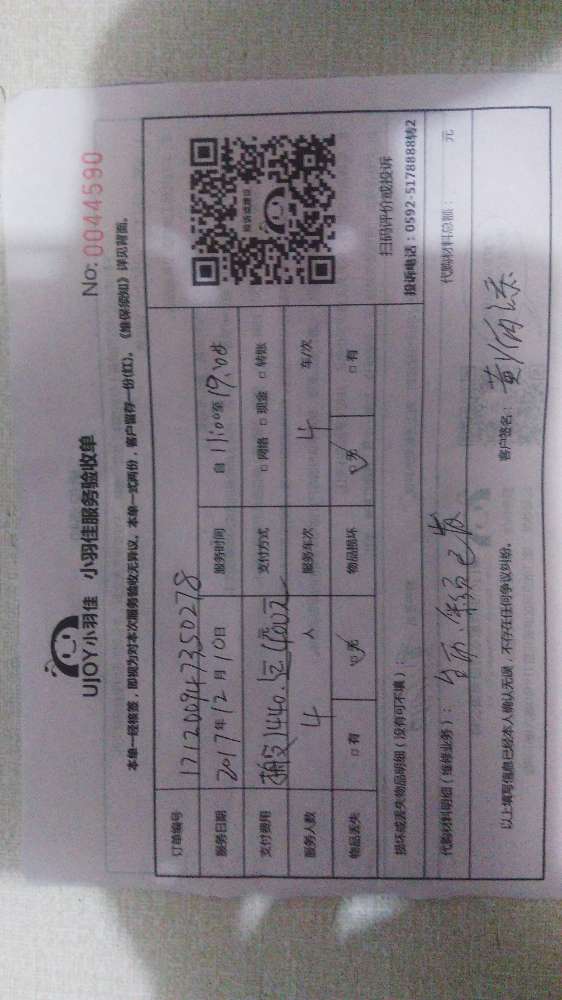 UJOY小羽佳 小羽佳服务验收单
No: 0044590
本单一经接签，即视为对本次服务验收无异议。本单一式两份，客户留存一份(红)。《维保须知》详见背面。
订单编号 1712009473502 78
服务日期 2017年12月10日 服务时间 自11:00至19:00
支付费用 1440. 1400元 支付方式 □网络 □现金 □转账
服务人数 4人 服务车次 4 车/次
物品丢失 □有 □无 物品损坏 □无 □有
投诉或建议
扫码评价或投诉
投诉电话：0592-5178888转2
损坏或丢失物品明细（没有可不填）：
代购材料明细（维修业务）： 代购材料总额： 元
以上填写信息已经本人确认无误，不存在任何争议纠纷。 客户签名： 黄